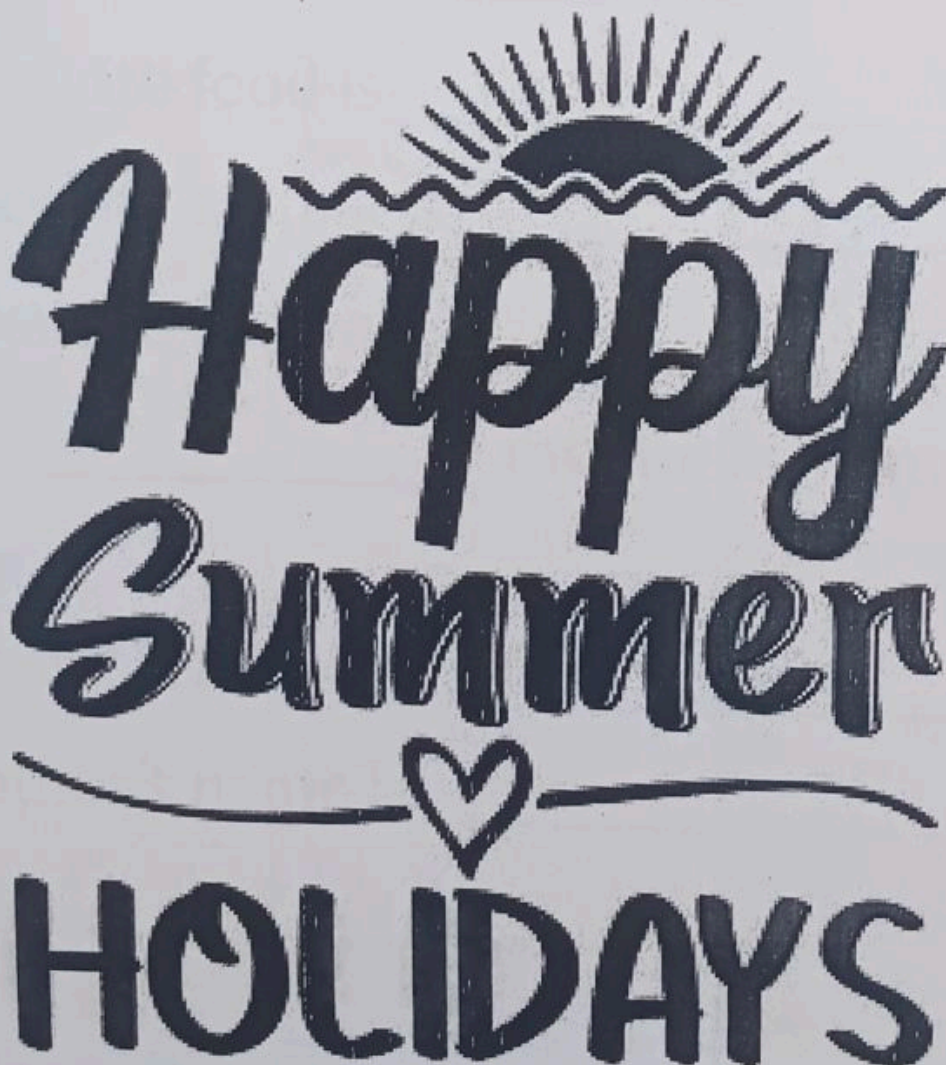 Happy
Summer
HOLIDAYS